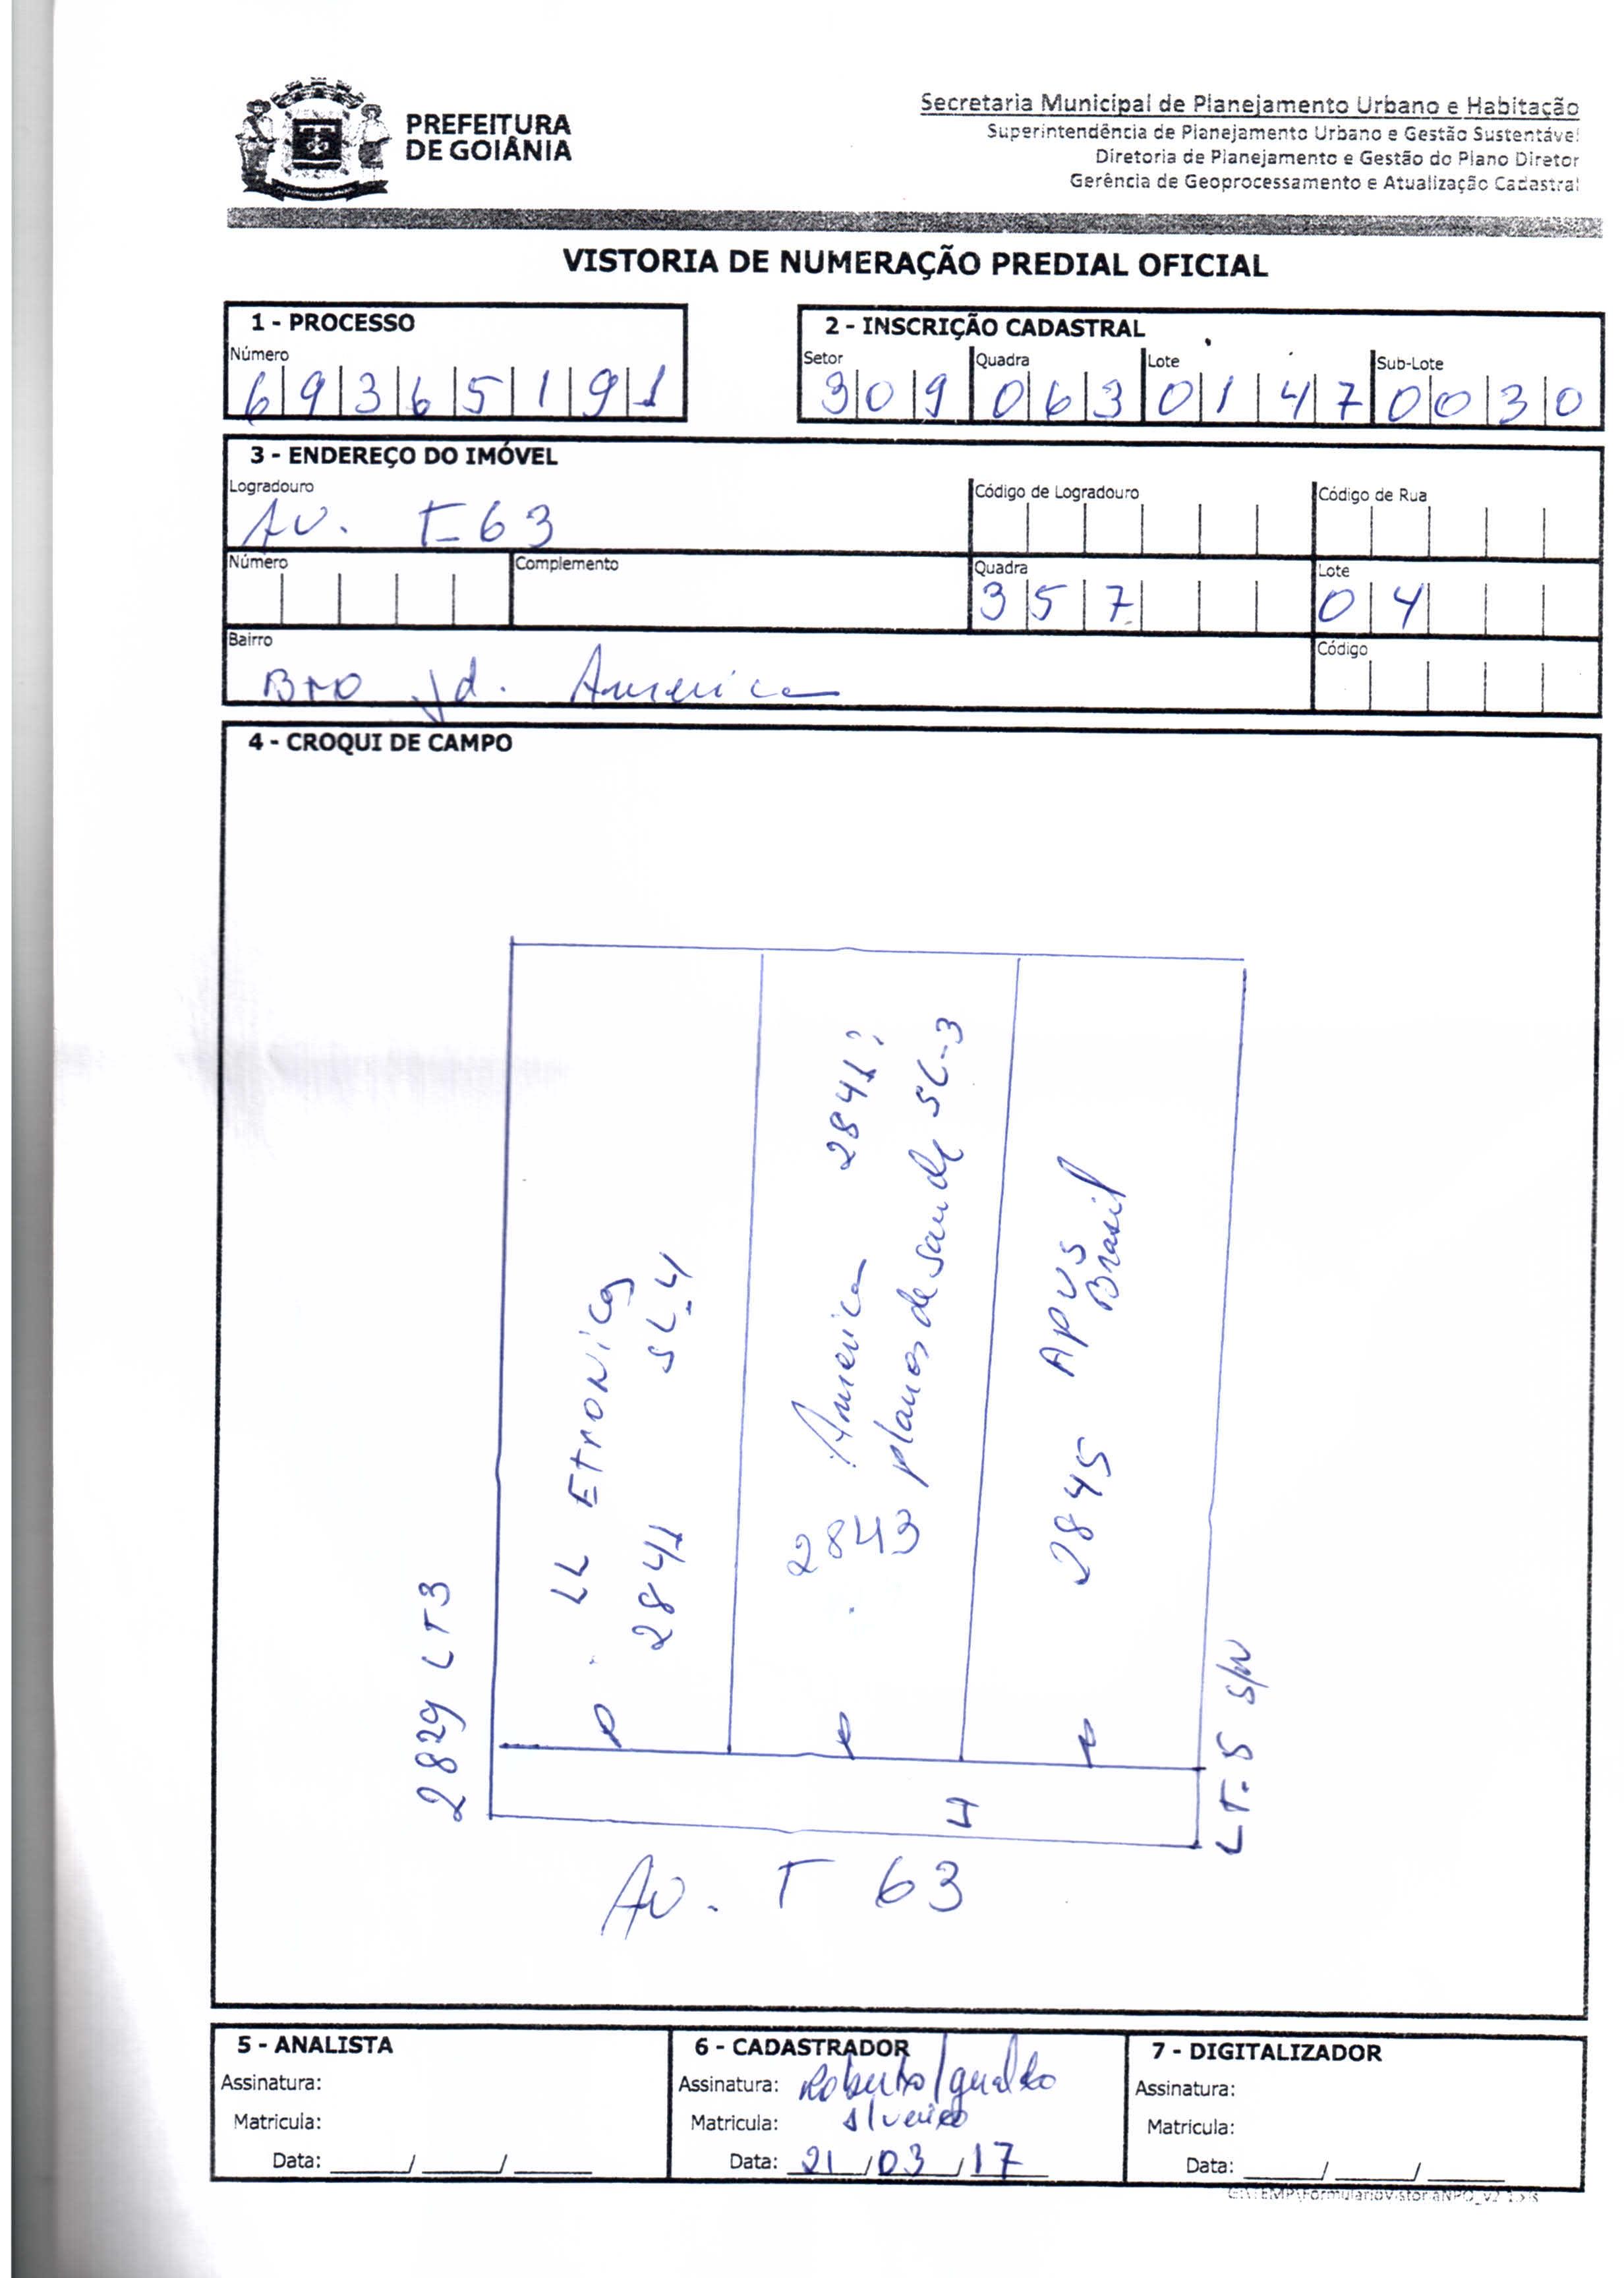 PREFEITURA
DE GOIÂNIA
Secretaria Municipal de Planejamento Urbano e Habitação
Superintendência de Planejamento Urbano e Gestão Sustentável
Diretoria de Planejamento e Gestão do Plano Diretor
Gerência de Geoprocessamento e Atualização Cadastral
VISTORIA DE NUMERAÇÃO PREDIAL OFICIAL
1 - PROCESSO
Número
69365191
2 - INSCRIÇÃO CADASTRAL
Setor Quadra Lote Sub-Lote
309 063 0147 0030
3 - ENDEREÇO DO IMÓVEL
Logradouro Código de Logradouro Código de Rua
Av. T-63
Número Complemento Quadra Lote
357 04
Bairro Código
Bro Jd. America
4 - CROQUI DE CAMPO
2829 LT3
LL EtroNicos
2841 SL-4
America 2841?
2843 planos de saude SL-3
2845 APUS
Brasil
LT. 5 S/N
4
Av. T 63
5 - ANALISTA
Assinatura:
Matricula:
Data: ____/____/____
6 - CADASTRADOR
Assinatura: Roberto
Matricula:
Data: 21/03/17
7 - DIGITALIZADOR
Assinatura:
Matricula:
Data: ____/____/____